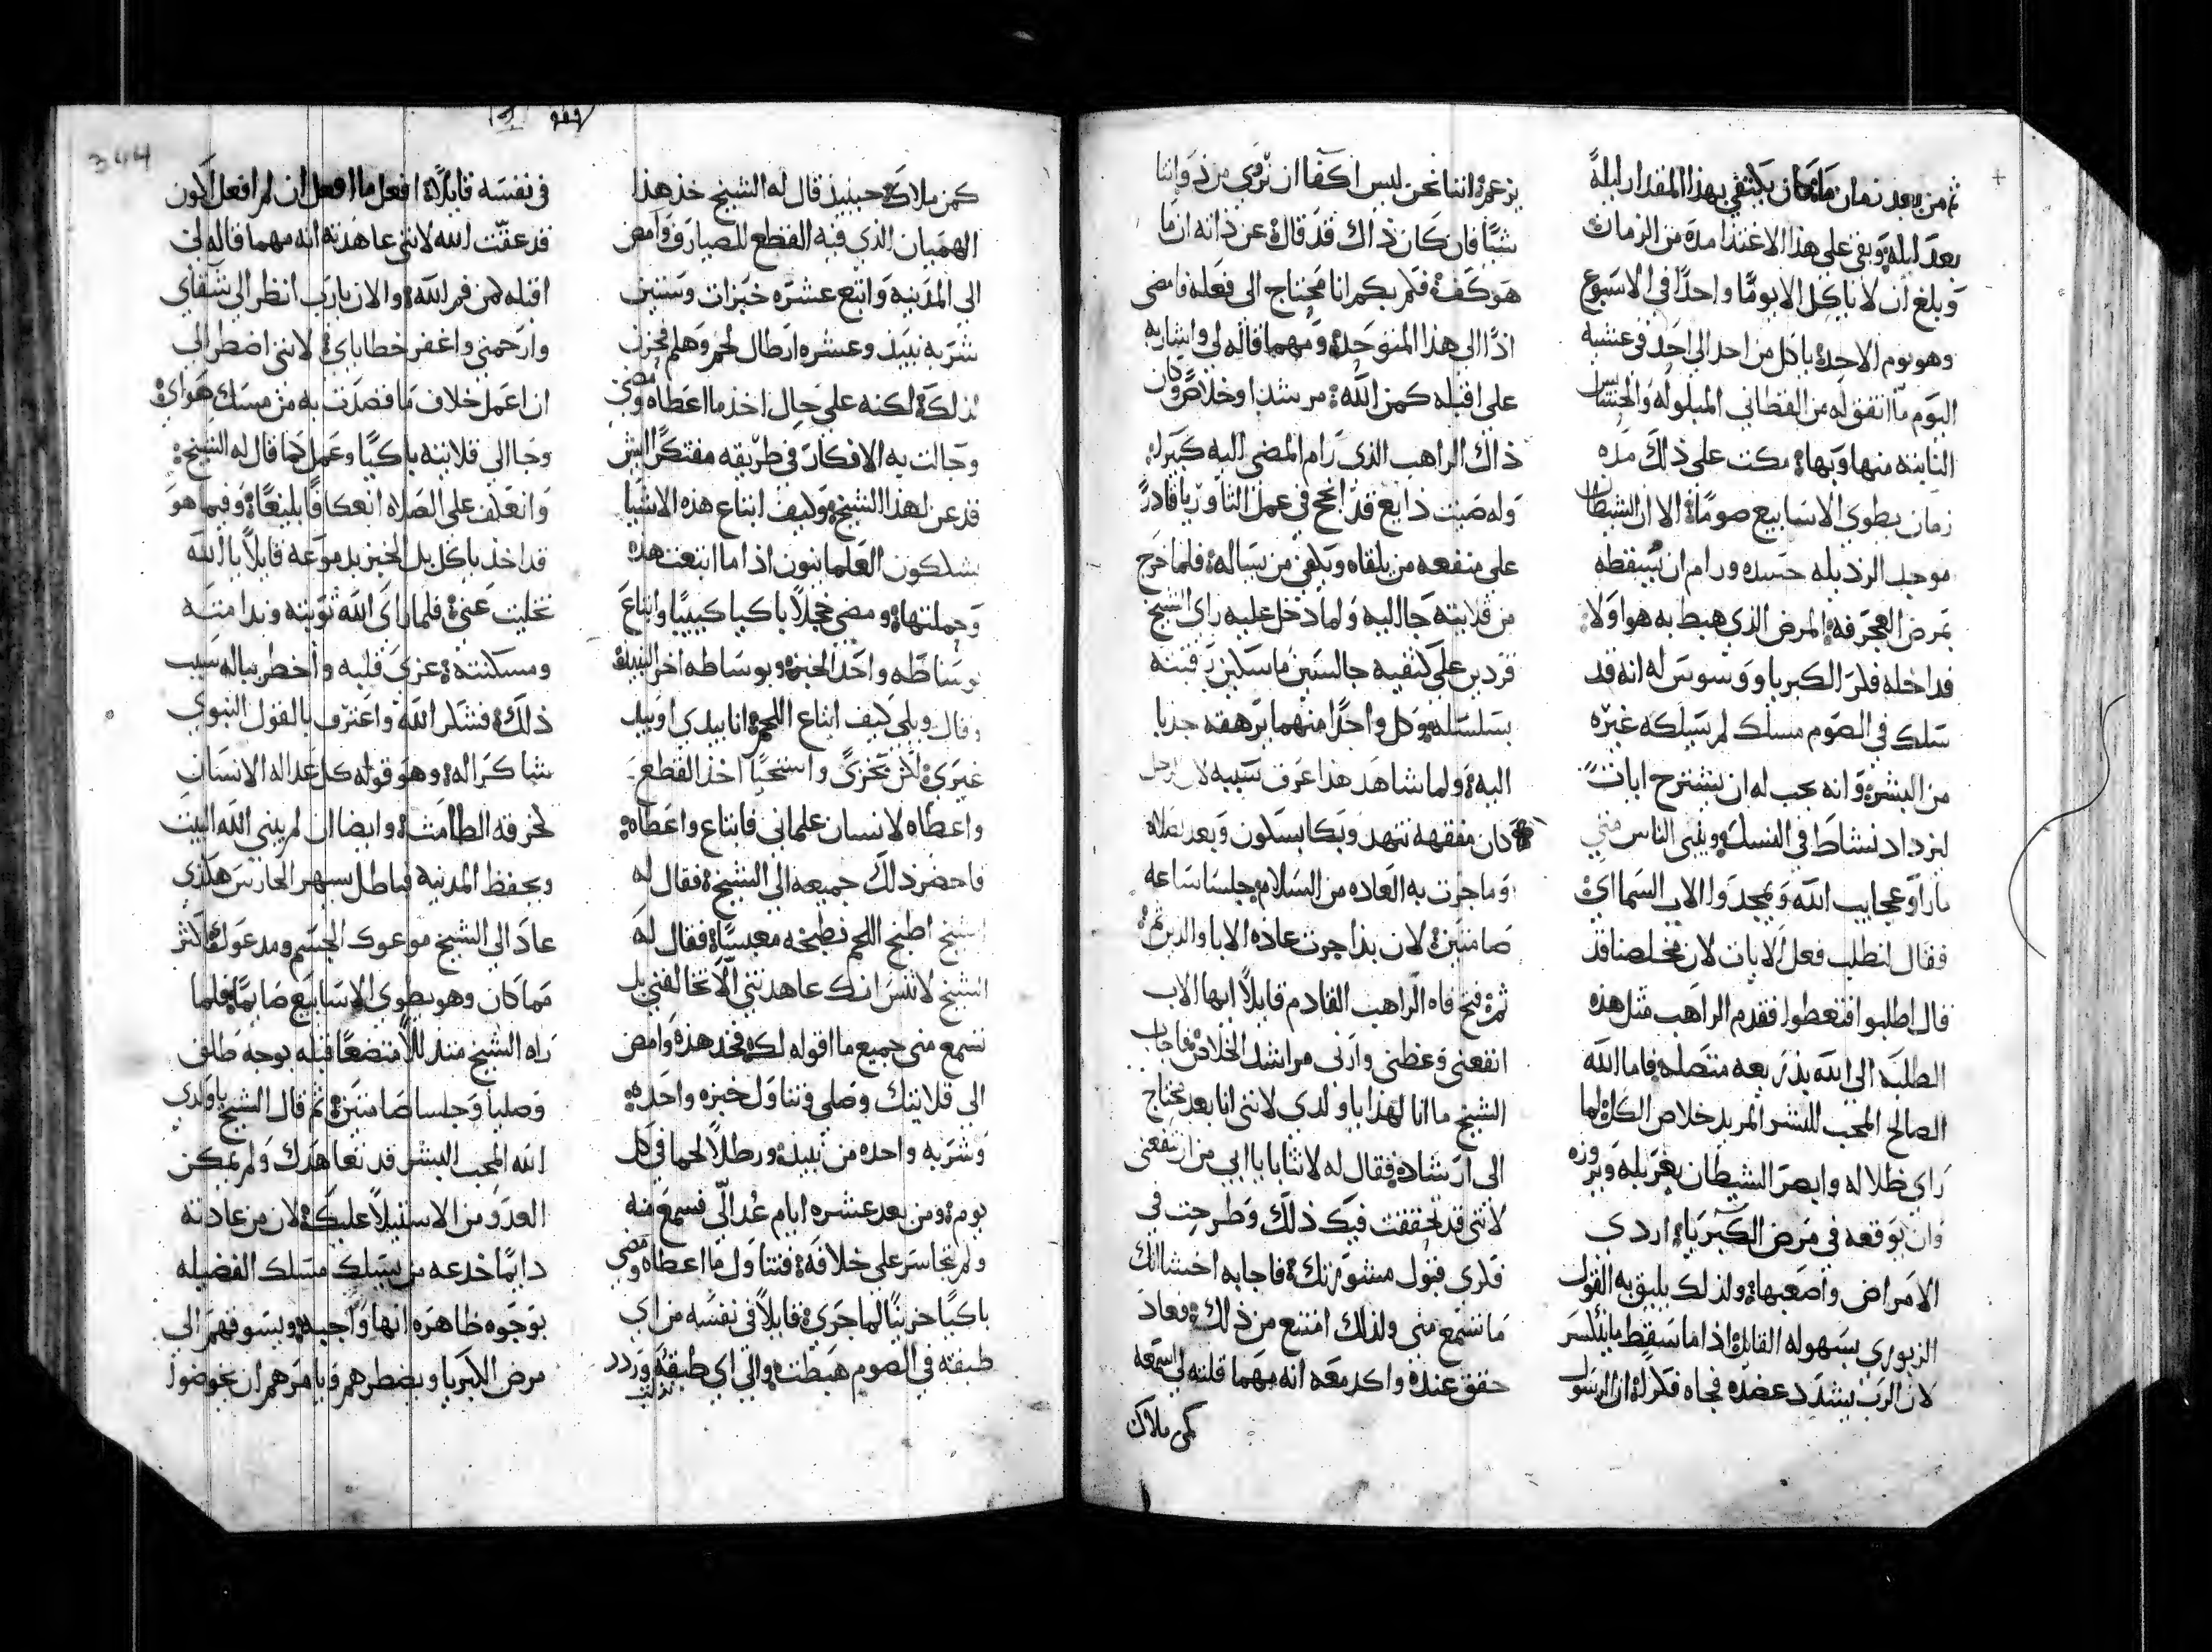 ثم من بعد زمان ما كان يكتفي بهذا المقدار ليلة
بعد ليلة وبقي على هذا الاغتذا مدة من الزمان
وبلغ ان لا ياكل الا يومًا واحدًا في الاسبوع
وهو يوم الاحد ياكل من احد الى احد في عشية
اليوم ما اتفق له من القطاني المبلوله والحشايش
النابته منها وبها مكث على ذلك مده
زمان يطوي الاسابيع صومًا الا ان الشيطان
موجد الرذيله حسده ورام ان يسقطه
بمرض العجرفه المرض الذي هبط به هو اولا
فداخله فكر الكبريا ووسوس له انه قد
سلك في الصوم مسلك لم يسلكه غيره
من البشر وانه يجب له ان يشترح ايات
ليزداد نشاط في النسك ويرى الناس مني
ما راو عجايب الله ويمجدوا الاب السماءي
فقال لنطلب فعل الايات لان مخلصنا قد
قال اطلبوا فتعطوا فقدم الراهب مثل هذه
الطلبه الى الله بذريعه متصله فاما الله
الصالح المحب للبشر المريد خلاص الكل لما
راي ظلاله وابصر الشيطان يغربله وبروزه
وان يوقعه في مرض الكبريا اردى
الامراض واصعبها ولذلك يليق به القول
الزبوري بسهوله القايل اذا ما سقط ما ينكسر
لان الرب يشدد عضده فجاه فكر ان الرسول
يزعم اننا نحن ليس اكفا ان نرتي من ذواتنا
شيًا فان كان ذاك قد قال عن ذاته انه ما
هو كفو فلم بكم انا محتاج الى فعله فامضى
اذًا الى هذا المتوحد ومهما قاله لي واشار به
علي اقبله كمن الله مرشدا وخلاص وكان
ذاك الراهب الذي رام المضي اليه كبير
وله صيت ذايع قد انجح في عمل الثاوريا قادر
على منفعه من يلقاه ويكفي من يساله فلما خرج
من قلايته جا اليه ولما دخل عليه راي الشيخ
قردين على كتفيه جالسين ماسكين رقبته
بسلسله وكل واحدًا منهما يرهقه جدبا
اليه ولما شاهد هذا عرف سببه لان الرجل
كان مفقهه تنهد وبكا بسكون وبعد صلاه
وما جرت به العاده من السلام جلسا ساعه
صامتين لان بذا جرت عادة الابا والذين ثم
ثم فتح فاه الراهب القادم قايلًا ايها الاب
انفعني وعظني وارني مراشد الخلاص فاجاب
الشيخ ما انا لهذا يا ولدي لانني انا بعد محتاج
الى ارشاد فقال له لا تتابا يا ابي من ان تنفعني
لانني قد تحققت فيك ذلك وطرحت في
فكري قبول مشورتك فاجابه اخشا انك
ما تسمع مني ولذلك امتنع من ذلك فعاد
حقق عنده واكد معه انه مهما قلته لي اسمعه
كمن ملاك
344
كمن ملاك حينيذ قال له الشيخ خذ هذا
الهميان الذي فيه القطع للصيارف وامض
الى المدينه وابتع عشره خبزات وستين
شربه نبيذ وعشره ارطال لحم وهلم فحزن
لذلك لكنه على حال اخذ ما اعطاه ومضى
وجالت به الافكار في طريقه مفتكرًا اليش
قد عن لهذا الشيخ وكيف ابتاع هذه الاشيا
يشكون العلمانيون اذا ما ابتعت هذه
وحملتها ومضى خجلًا باكيا كييبًا وابتاع
بوساطه واحد الخبز وبوساطه اخر النبيذ
وقال ويلي كيف ابتاع اللحم انا بيدي او بيد
غيري لكن تخزى واستحيا اخذ القطع
واعطاه لانسان علماني فابتاع واعطاه
فاحضر ذلك جميعه الى الشيخ فقال له
الشيخ اطبخ اللحم فطبخه معبسًا فقال له
الشيخ لا تنس انك عاهدتني الا تخالفني بل
تسمع مني جميع ما اقوله لك فخذ هذه وامض
الى قلايتك وصلي وتناول خبزه واحده
وشربه واحده من نبيذ ورطلًا لحما في كل
يوم ومن بعد عشره ايام عُد الّي فسمع منه
ولم يتجاسر على خلافه فتناول ما اعطاه ومضى
باكيًا حزينًا لما جرى قايلًا في نفسه من اي
طبقه في الصوم هبطت والى اي طبقه وردد
في نفسه قايلًا افعل ما افعل ان لم افعل اكون
قد عققت الله لانني عاهدته انه مهما قاله لي
اقبله كمن فم الله والان يا رب انظر الى شقاي
وارحمني واغفر خطاياي لانني اضطر الى
ان اعمل خلاف ما قصدت به من مسك هواي
وجا الى قلايته باكيًا وعمل كما قال له الشيخ
وانعكف على الصلاه انعكافًا بليغًا وفيما هو
قد اخذ ياكل بل الخبز بدموعه قايلًا يا الله
تخليت عني فلما راى الله توبته وندامته
ومسكنته عزى قلبه واخطر بباله سبب
ذلك فشكر الله واعترف بالقول النبوي
شاكرًا له وهو قوله كل عداله الانسان
لخرقه الطامث وايضا ان لم يبني الله البيت
ويحفظ المدينه فباطل يسهر الحارس هكذى
عاد الى الشيخ موعوك الجسم ومدعوكا اكثر
مما كان وهو يطوي الاسابيع صايمًا فلما
راه الشيخ متذللًا متضعًا قبله بوجه طلق
وصليا وجلسا صامتين ثم قال الشيخ يا ولدي
الله المحب البشر قد تعاهدك ولم يمكن
العدو من الاستيلا عليك لان من عادته
دايمًا خدعه من يسلك مسلك الفضيله
بوجوه ظاهره انها واجبه ويسوقهم الى
مرض الكبريا ويضطرهم ويامرهم ان يخوضوا